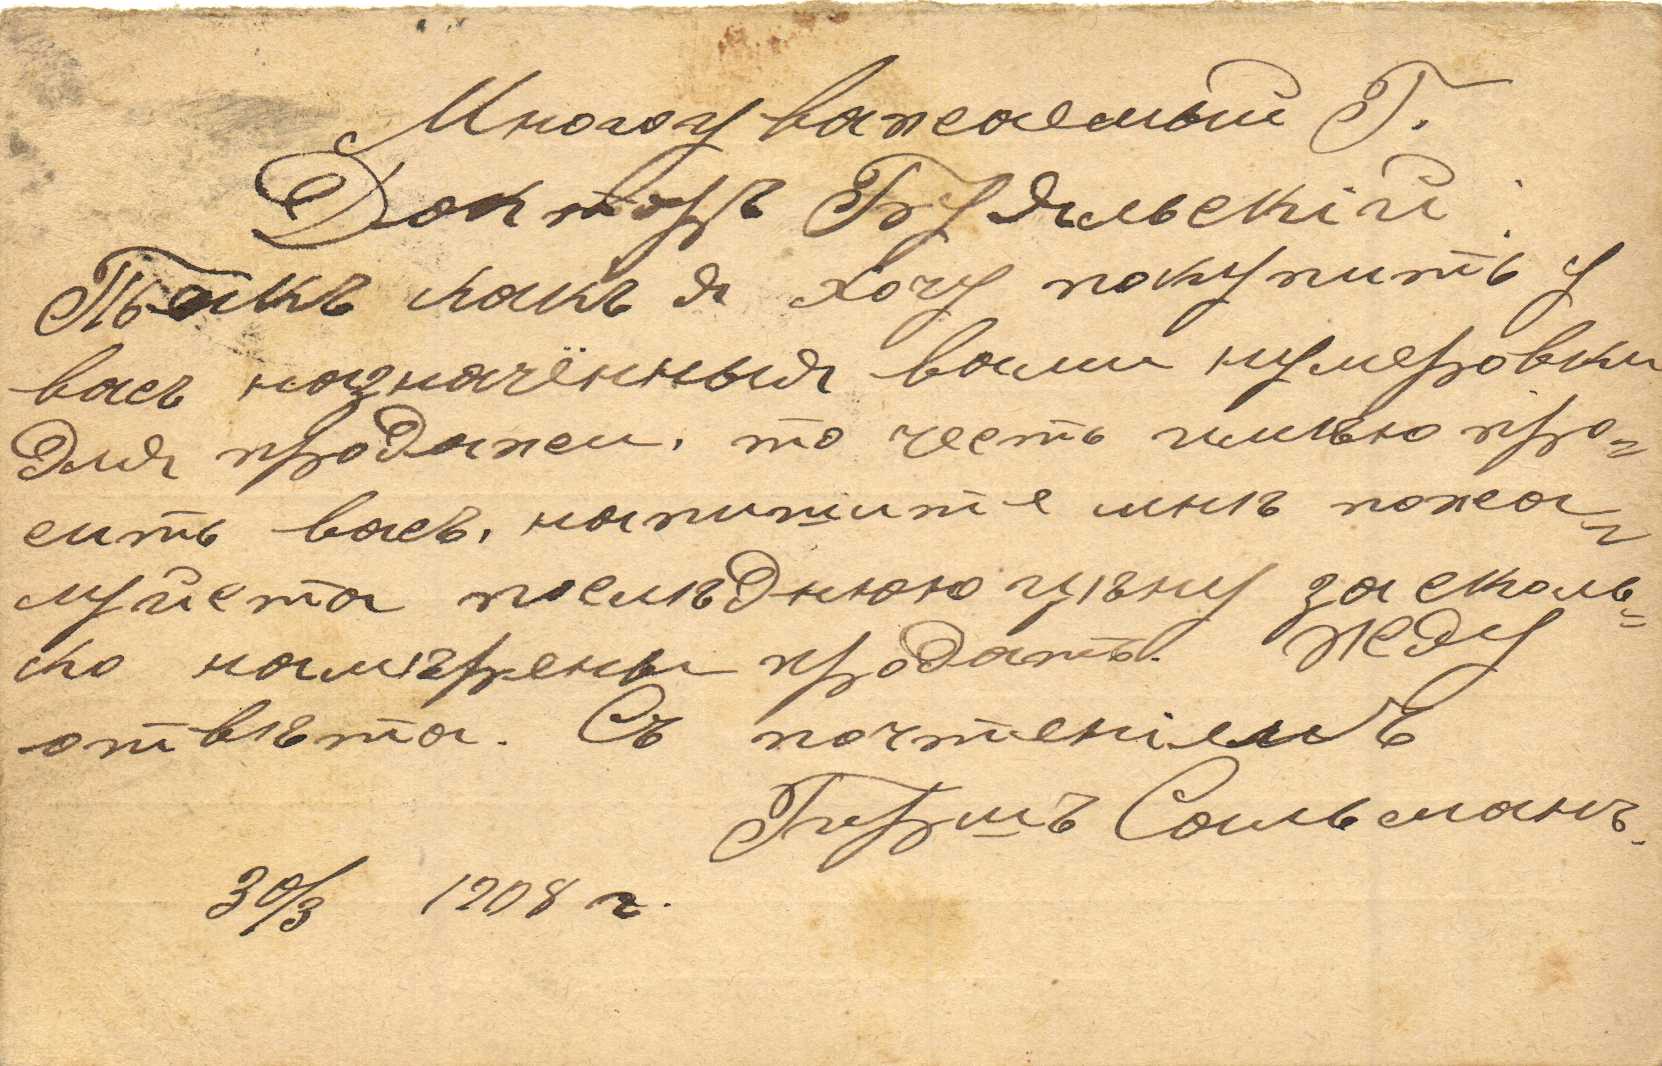 Многоуважаемый Г.
Докторъ
Такъ какъ я хочу покупить у
васъ назначённыя вами нумеровки
для продажи, то честь имѣю про=
сить васъ, напишите мнѣ пожа=
луйста послѣднюю цѣну за сколь=
ко намѣрены продать. Жду
отвѣта. Съ почтеніемъ
Гиршъ Сольманъ.
30/3 1908 г.